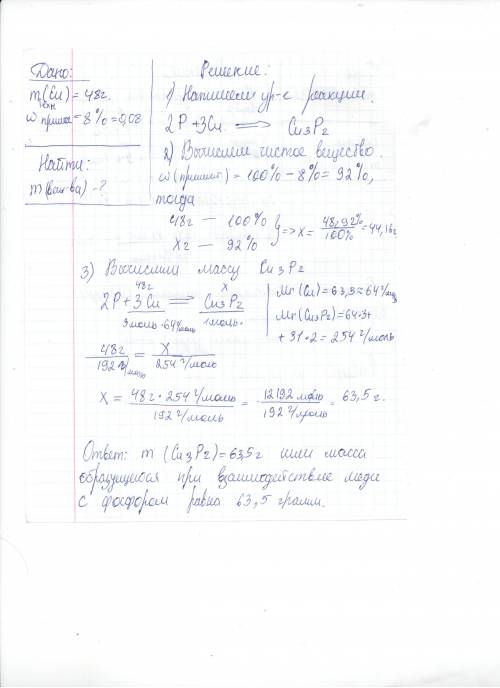 Дано:
m(Cu) = 48г.
техн
ω примес = 8% = 0,08
Найти:
m(вещ-ва) - ?
Решение:
1) Напишем ур-е реакции.
2P + 3Cu ⟹ Cu3P2
2) Вычислим чистое вещество.
ω(примес) = 100% - 8% = 92%,
тогда
48г — 100%
xг — 92%
} => x = 48,92% / 100% = 44,16г
3) Вычислим массу Cu3P2
48г x
2P + 3Cu ⟹ Cu3P2
3моль·64г/моль 1моль·
Mr(Cu) = 63,5 ≈ 64г/моль
Mr(Cu3P2) = 64·3+
+ 31·2 = 254г/моль
48г / 192г/моль = X / 254г/моль
X = 48г·254г/моль / 192г/моль = 12192 / 192г/моль = 63,5 г.
Ответ: m (Cu3P2) = 63,5г или масса
образующегося при взаимодействие меди
с фосфором равна 63,5 грамм.